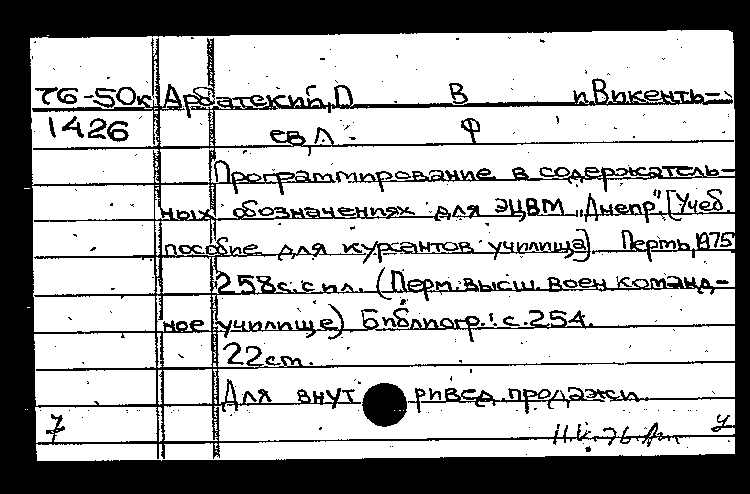 76-50к Арбатский, П В и Викенть-
1426 ев, Л. Ф
Программирование в содержатель-
ных обозначениях для ЭЦВМ „Днепр". [Учеб.
пособие для курсантов училища]. Пермь, 1975
258с. с ил. (Перм. высш. воен команд-
ное училище). Библиогр.: с. 254.
22 см.
Для внутривед．продажи．
7 76 У